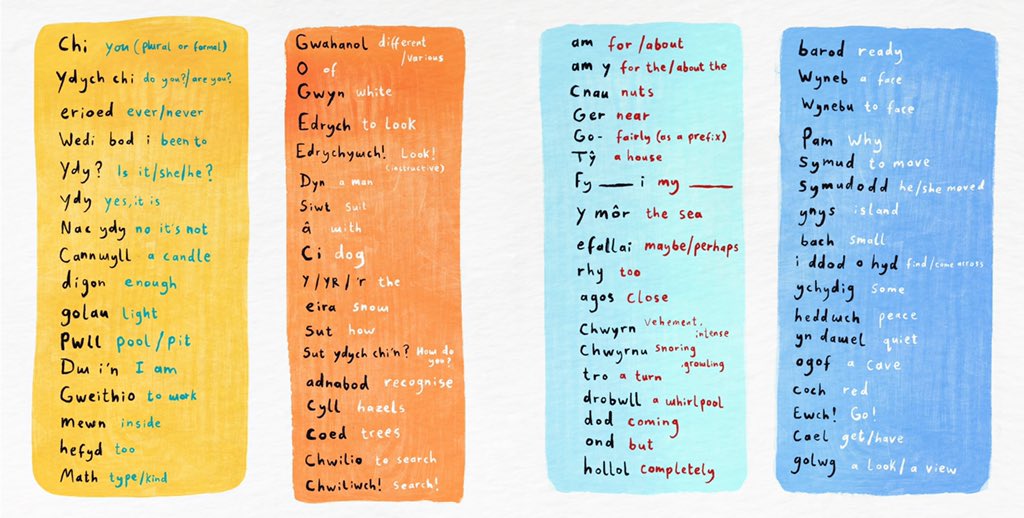 Chi you (plural or formal)
Ydych chi do you?/are you?
erioed ever/never
Wedi bod i been to
Ydy? Is it/she/he?
ydy yes, it is
Nac ydy no it's not
Cannwyll a candle
digon enough
golau light
Pwll pool/pit
Dw i'n I am
Gweithio to work
mewn inside
hefyd too
Math type/kind
Gwahanol different
/various
O of
Gwyn white
Edrych to look
Edrychwch! Look!
(instructive)
Dyn a man
Siwt suit
â with
Ci dog
Y/YR/'r the
eira snow
Sut how
Sut ydych chi'n? How do
you?
adnabod recognise
Cyll hazels
Coed trees
Chwilio to search
Chwiliwch! Search!
am for/about
am y for the/about the
Cnau nuts
Ger near
Go- fairly (as a prefix)
Tŷ a house
Fy ___ i my ___
y môr the sea
efallai maybe/perhaps
rhy too
agos close
Chwyrn vehement,
intense
Chwyrnu snoring
,growling
tro a turn
drobwll a whirlpool
dod coming
ond but
hollol completely
barod ready
Wyneb a face
Wynebu to face
Pam Why
Symud to move
Symudodd he/she moved
ynys island
bach small
i ddod o hyd find/come across
ychydig some
heddwch peace
yn dawel quiet
ogof a cave
coch red
Ewch! Go!
Cael get/have
golwg a look/a view